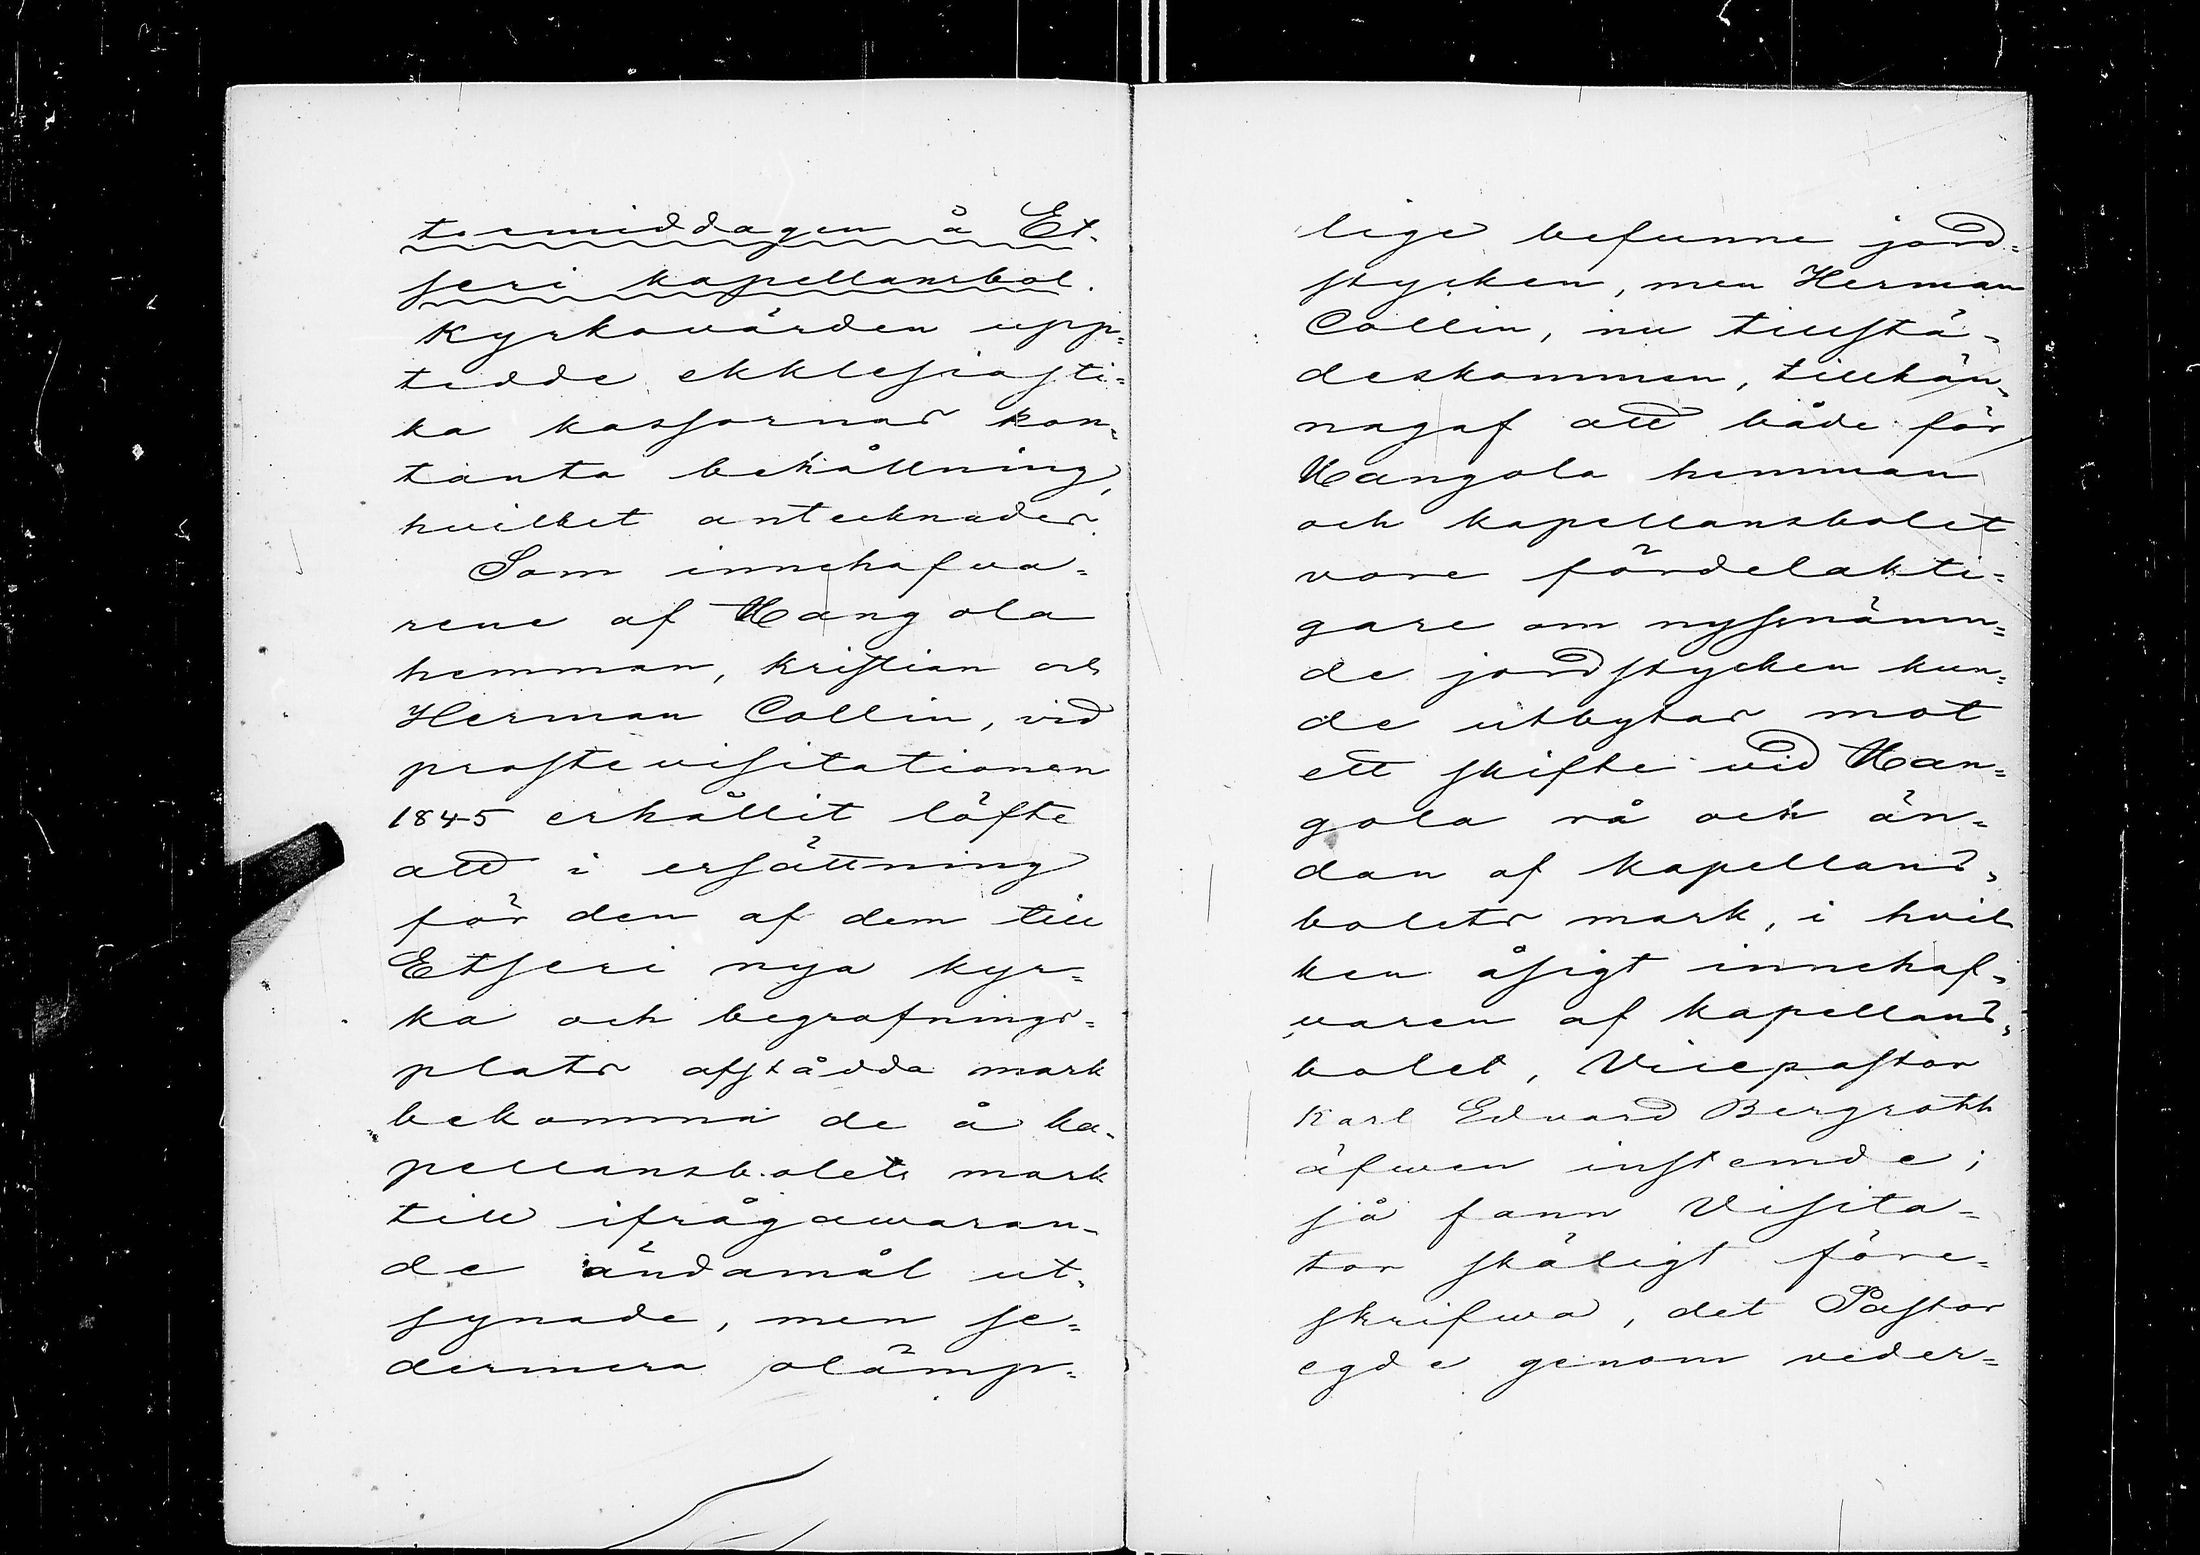 termiddagen å Et-
seri kapellansbol.
Kyrkovärden upp=
tedde ekklesiasti=
ka kassornas kon=
tanta behållning,
hvilket antecknades.
Som innehafva=
rene af Hangola
hemman, Kristian och
Herman Collin, vid
prostevisitationen
1845 erhållit löfte
att i ersättning
för den af dem till
Etseri nya kyr=
ka och begrafnings=
plats afstådda mark
bekomma de å ka-
pellansbolets mark
till ifrågawaran-
de ändamål ut-
synade, men se=
dermera olämp=
lige befunne jord=
stycken, men Herman
Collin, nu tillstä-
deskommen, tillkän-
nagaf att både för
Hangola hemman
och kapellansbolet
vore fördelakti=
gare om nyssnämn=
de jordstycken kun=
de utbytas mot
ett skifte vid Han=
gola rå och än-
dan af kapellans-
bolets mark, i hvil
ken åsigt innehaf-
varen af kapellans-
bolet, Vicepastor
Karl Edvard Bergroth
äfwen instemde;
så fann Visita-
tor skäligt före-
skrifwa, det Pastor
egde genom veder=